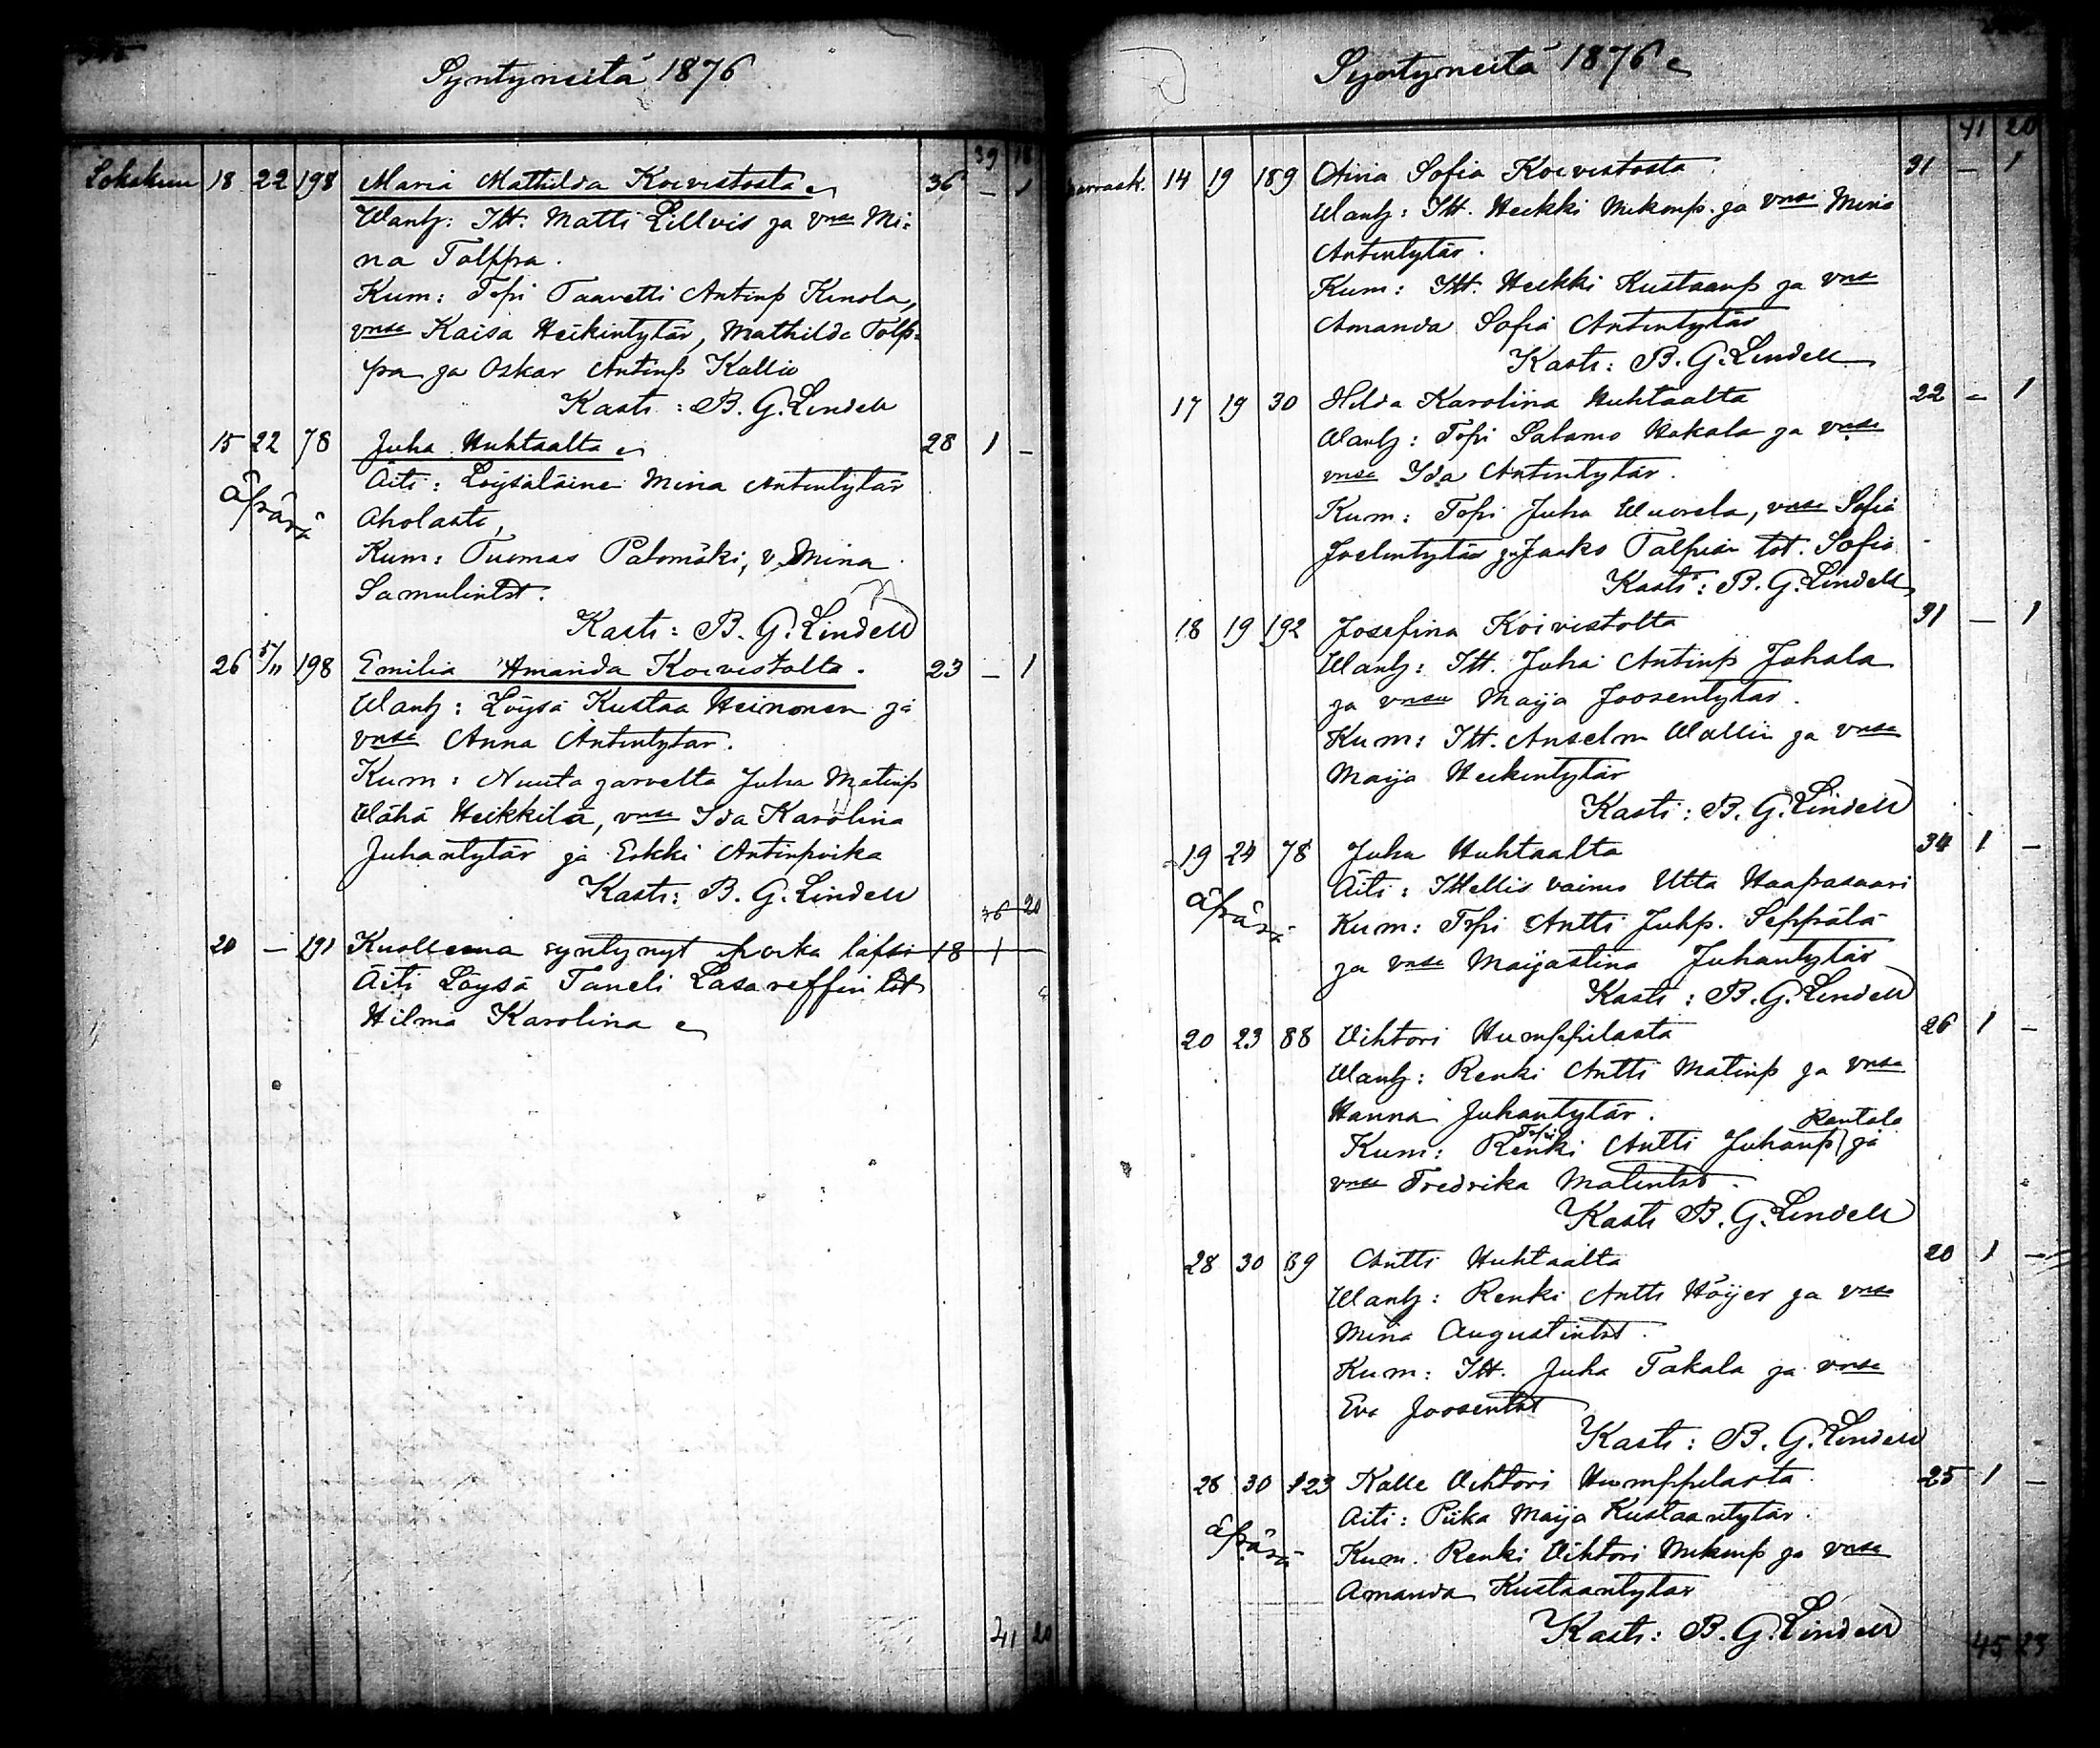 Syntyneitä 1876
39 18
Lokakuu 18 22 198 Maria Mathilda Koivistosta 36 — 1
Wanh: Itt. Matti Lillvis ja vnsa Mi=
na Tolppa.
Kum: Topi Taavetti Antinp Kinola,
vnsa Kaisa Heikintytär, Mathilda Tolp=
pa ja Oskar Antinp Kallio
Kasti: B. G. Lindell
15 22 78 Juha Huhtaalta 28 1 —
Äiti: Löysäläinen Mina Antintytär
äpärä
Aholasti,
Kum: Tuomas Palomäki, v. Mina
Samulintst.
Kasti: B. G. Lindell
26 5/11 198 Emilia Amanda Koivistolta. 23 — 1
Wanh: Löysä Kustaa Heinonen ja
vnsa Anna Antintytär.
Kum: Nuutajarvelta Juha Matinp
Wähä Heikkilä, vnsa Ida Karolina
Juhantytär ja Erkki Antinpoika
Kasti: B. G. Lindell
20
20 — 191 Kuolleena syntynyt poika lapsi 18 1 —
Äiti Löysä Taneli Lasareffin tst
Hilma Karolina
41 20
Syntyneitä 1876
41 20
marrask. 14 19 189 Aina Sofia Koivistosta 31 — 1
Wanh: Itt. Heikki Mikonp. ja vnsa Mina
Antintytär.
Kum: Itt. Heikki Kustaanp ja vnsa
Amanda Sofia Antintytär
Kasti: B. G. Lindell
17 19 30 Hilda Karolina Huhtaalta 22 — 1
Wanh: Topi Salamo Hakala ja vnsa
vnsa Ida Antintytär.
Kum: Topi Juha Wuorela, vnsa Sofia
Joelintytär ja Jaako Talpian tst. Sofia
Kasti: B. G. Lindell
18 19 192 Josefina Koivistolta 31 — 1
Wanh: Itt. Juha Antinp Johala
ja vnsa Maija Joosentytär.
Kum: Itt. Anselm Wallin ja vnsa
Maija Heikintytär
Kasti: B. G. Lindell
19 24 78 Juha Huhtaalta 34 1 —
Äiti: Itsellis vaimo Ulla Haapasaari
äpärä
Kum: Topi Antti Juhp. Seppälä
ja vnsa Maijastina Juhantytär
Kasti: B. G. Lindell
20 23 88 Vihtori Humppilasta 26 1 —
Wanh: Renki Antti Matinp ja vnsa
Hanna Juhantytär.
Topi Rantala
Kum: Renki Antti Juhanp ja
vnsa Fredrika Matintst.
Kasti B. G. Lindell
28 30 89 Antti Huhtaalta 20 1 —
Wanh: Renki Antti Höijer ja vnsa
Mina Augustintst.
Kum: Itt. Juha Takala ja vnsa
Eva Joosentst
Kasti: B. G. Lindell
26 30 123 Kalle Vihtori Humppilasta 25 1 —
Äiti: Piika Maija Kustaantytär.
äpärä
Kum. Renki Vihtori Mikonp ja vnsa
Amanda Kustaantytär
Kasti: B. G. Lindell
45 23